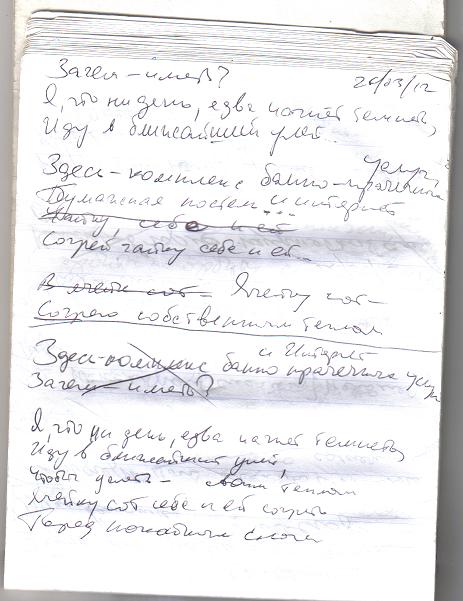 Зачем – иметь? 26/03/12
Я, что ни день, едва начнёт темнеть,
Иду в ближайший улей...
Здесь – комплекс банно-прачечных услуг,
Бумажная постель и интернет
Чайку, себе и ей
Согрей чайку себе и ей...
В ячейке сот – Ячейку сот –
Согрею собственным теплом
Здесь – комплекс банно прачечных услуг
и Интернет
Зачем – иметь?
Я, что ни день, едва начнёт темнеть,
Иду в ближайший улей,
Чтобы успеть – теплом
Ячейку сот себе и ей согреть
Перед